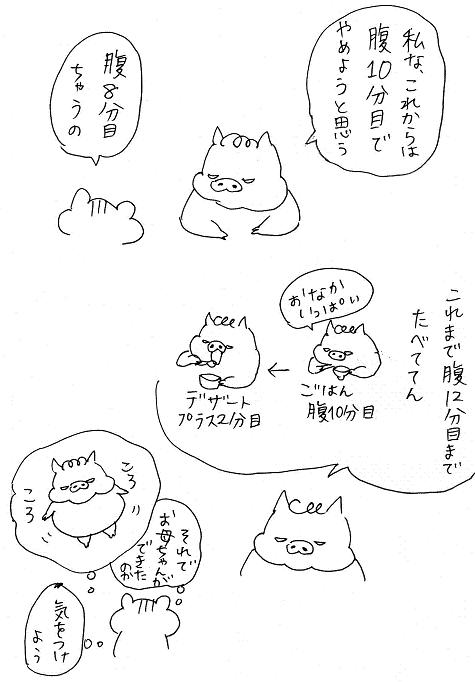 私な、これからは
腹10分目で
やめようと思う
腹8分目
ちゃうの
これまで腹12分目まで
たべててん
おなか
いっぱい
ごはん
腹10分目
←
デザート
プラス2分目
それで
お母ちゃんが
できた
のか
ころ
ころ
気をつけ
よう